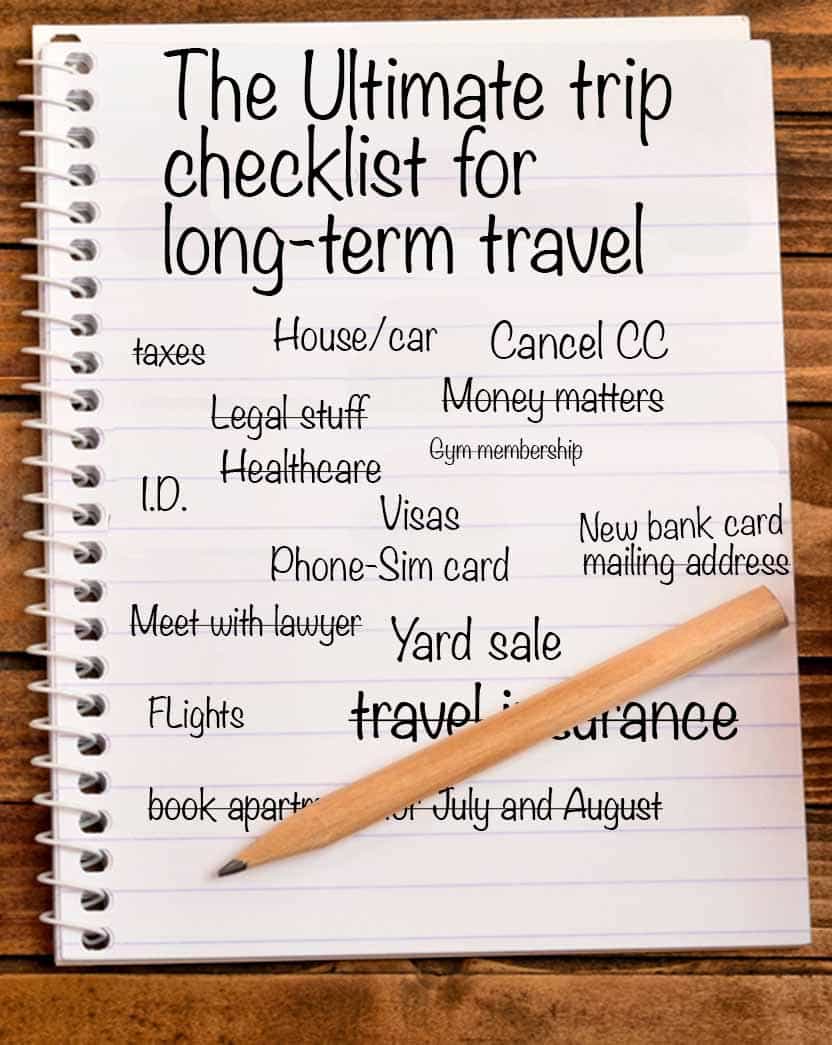 The Ultimate trip
checklist for
long-term travel
taxes
House/car
Cancel CC
Legal stuff
Money matters
Healthcare
Gym membership
I.D.
Visas
New bank card
mailing address
Phone-Sim card
Meet with lawyer
Yard sale
FLights
travel
book July and August